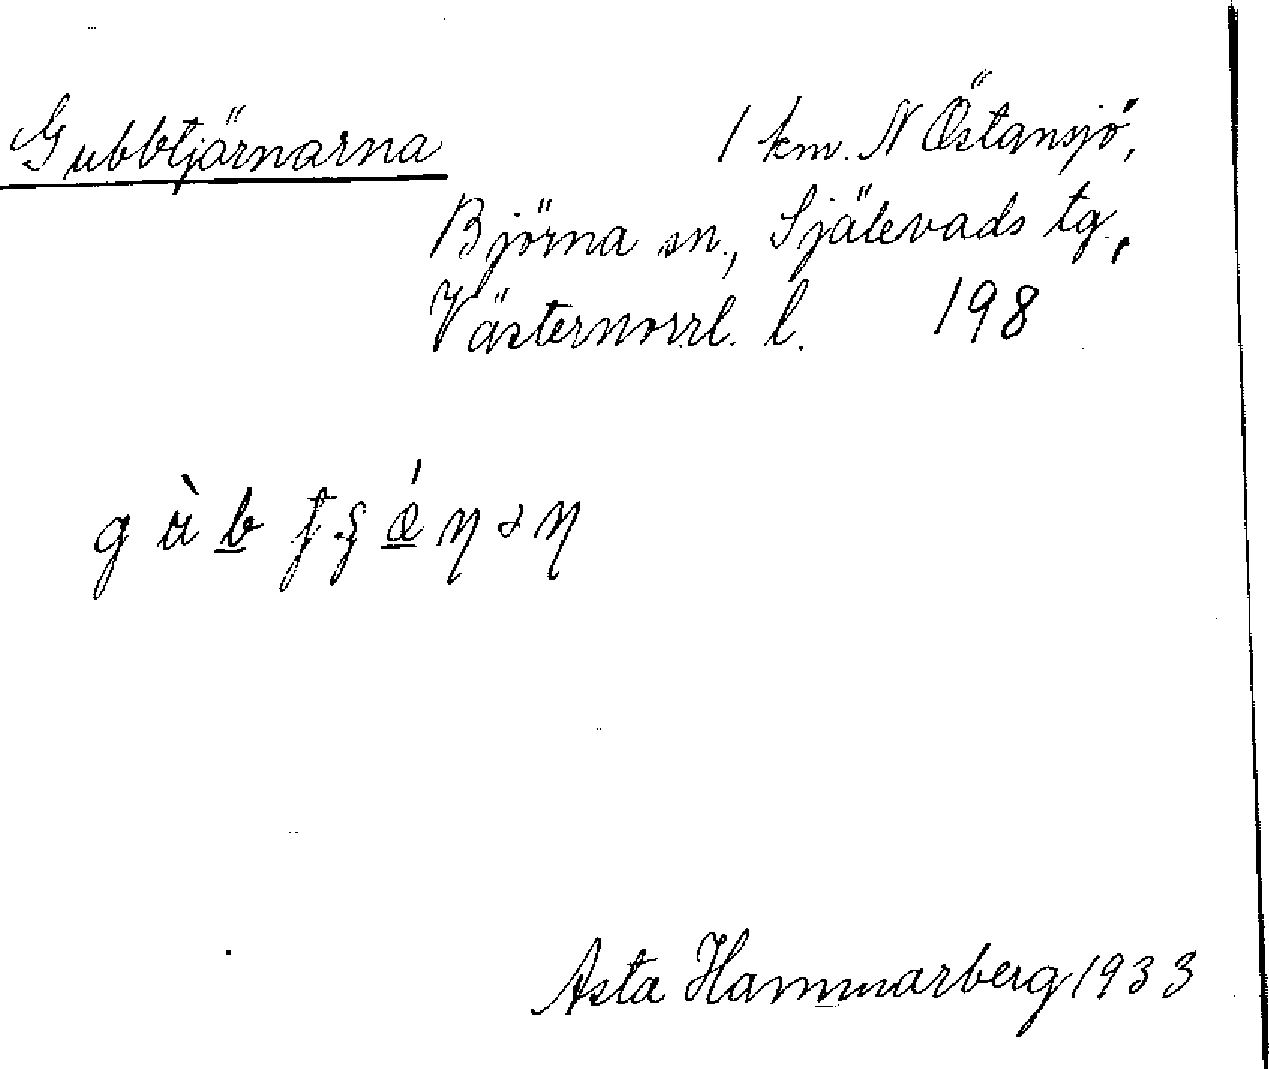 Gubbtjärnarna 1 km. N Östansjö,
Björna sn., Själevads tg,
Västernorrl. l. 198
Asta Hammarberg 1933